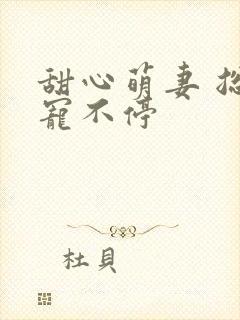 甜心萌妻
寵不停
杜貝